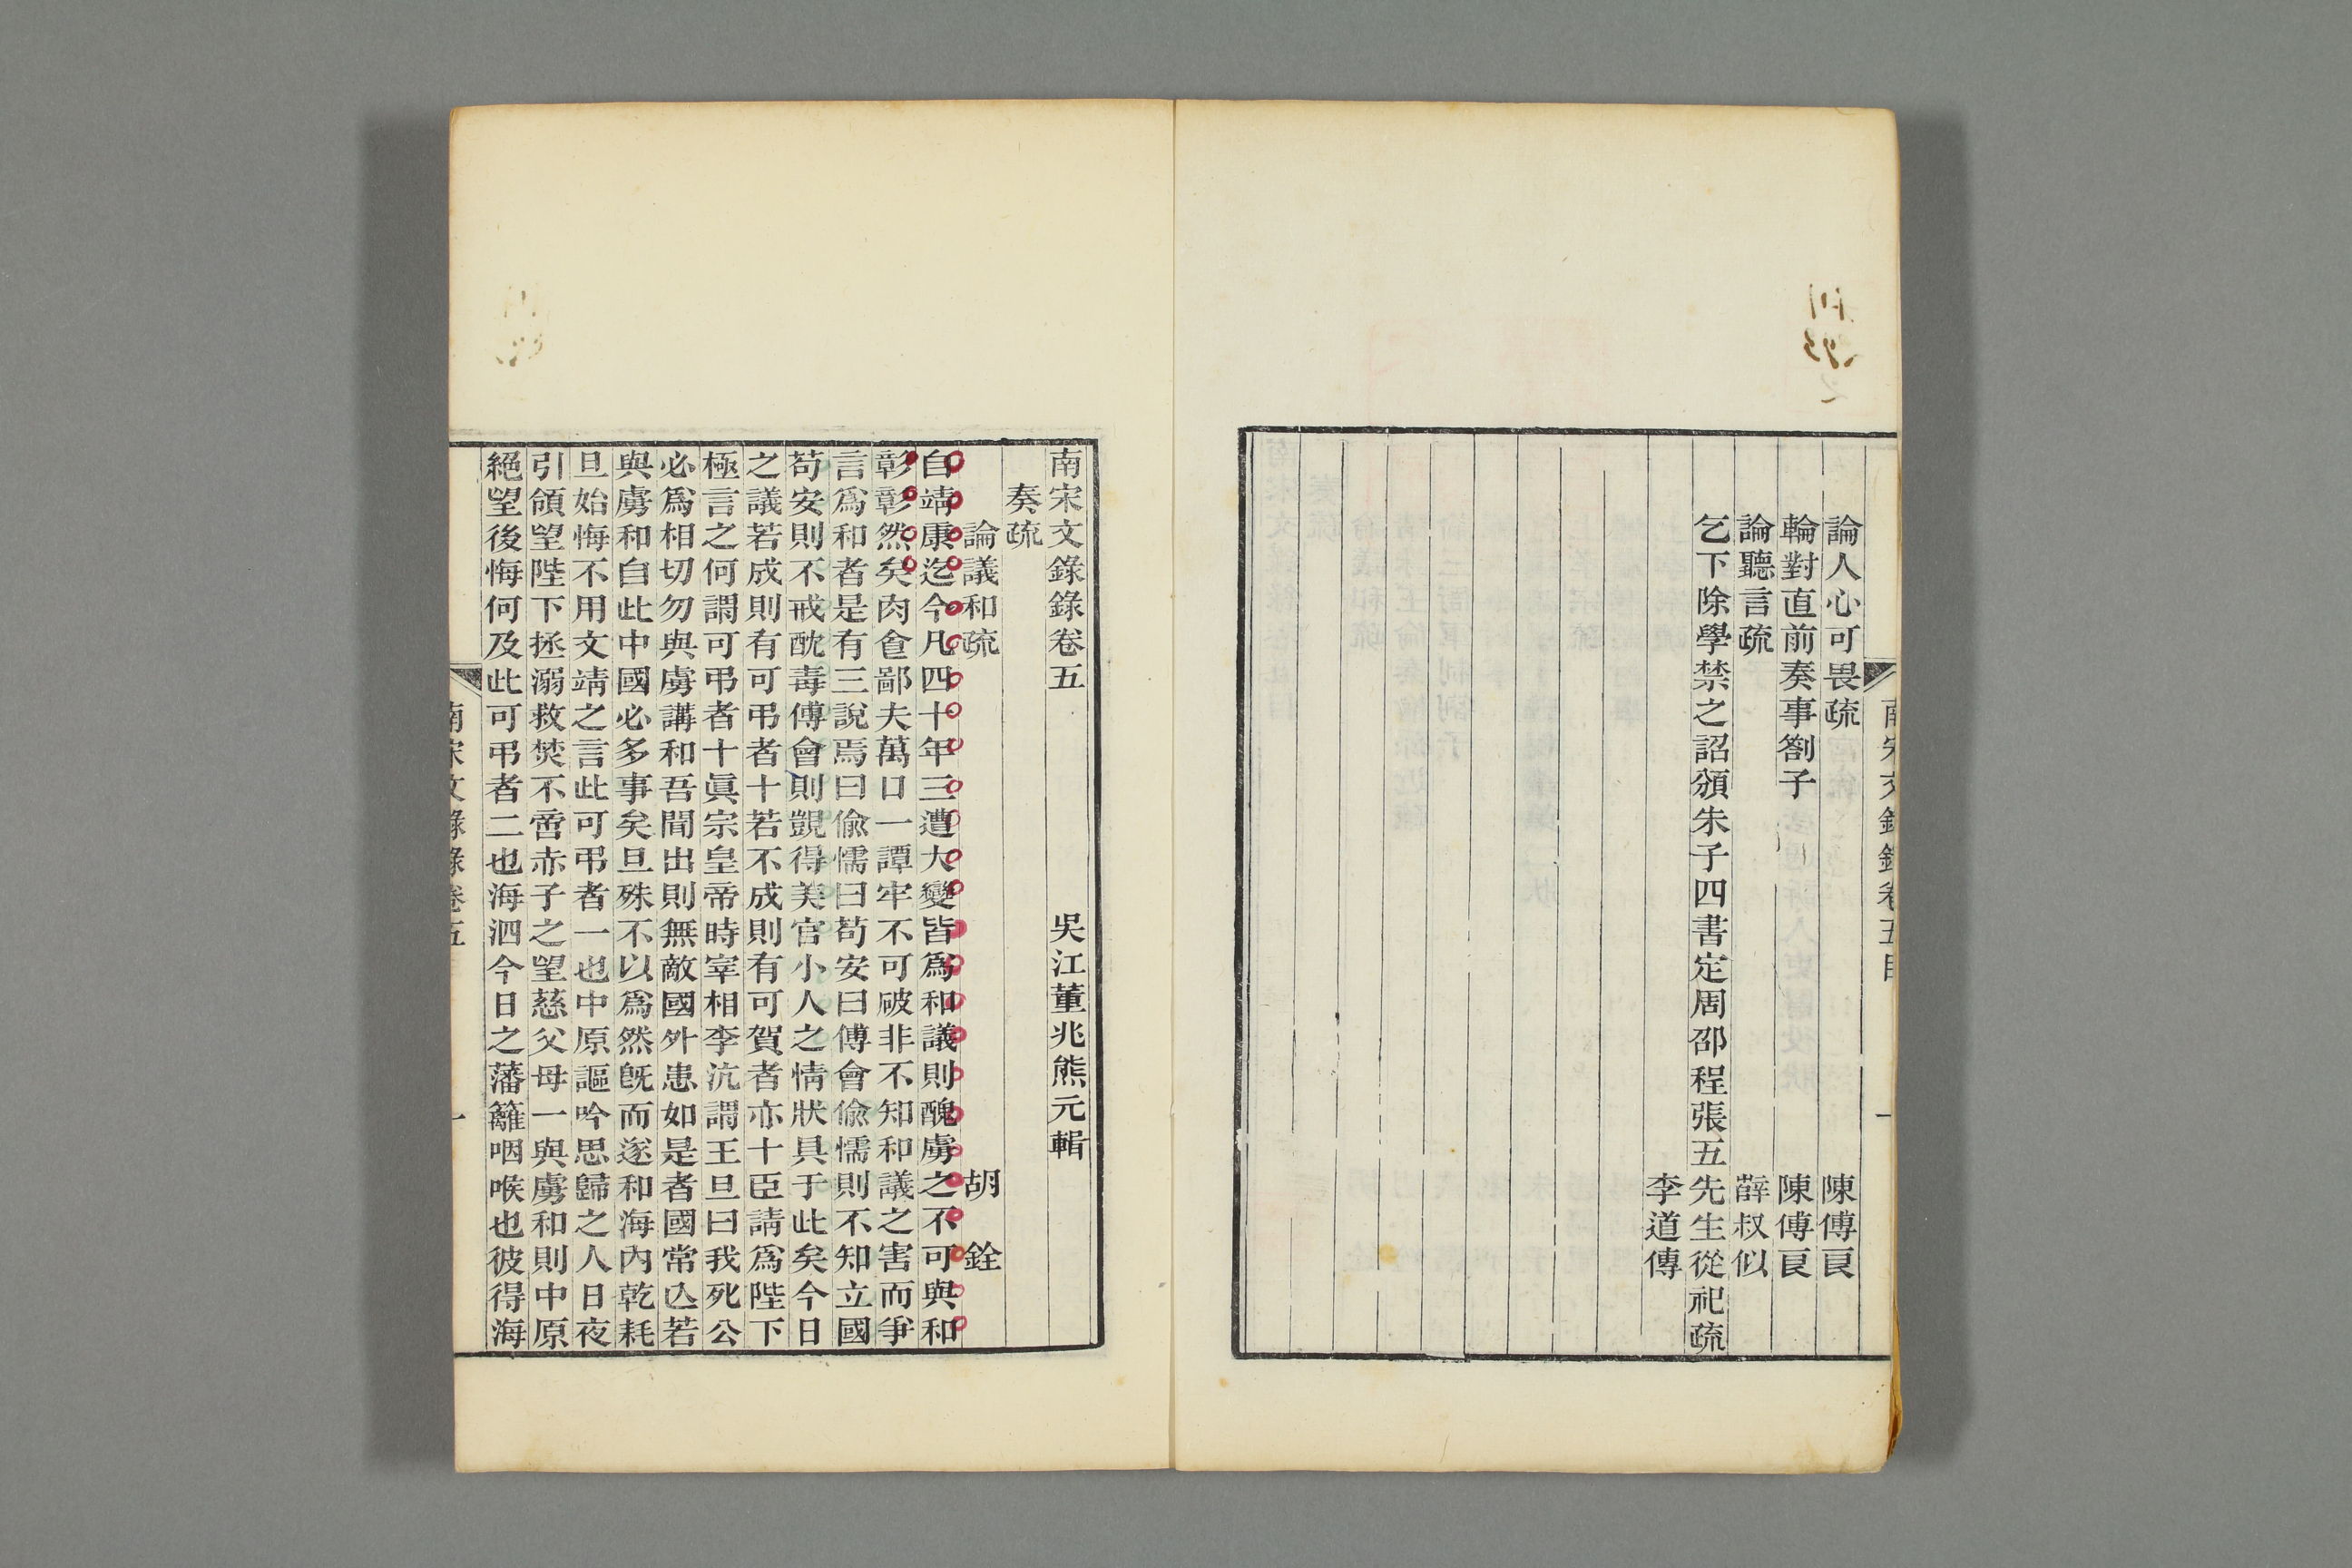 論人心可畏疏　陳傅良
輪對直前奏事劄子　陳傅良
論聽言疏　薛叔似
乞下除學禁之詔頒朱子四書定周邵程張五先生從祀疏
李道傳
南宋文錄錄卷五目
一
南宋文錄錄卷五　吳江董兆熊元輯
奏疏
論議和疏　胡銓
自靖康迄今凡四十年三遭大變皆爲和議則醜虜之不可與和
彰彰然矣肉食鄙夫萬口一譚牢不可破非不知和議之害而爭
言爲和者是有三說焉曰偸懦曰苟安曰傅會偸懦則不知立國
苟安則不戒酖毒傅會則覬得美官小人之情狀具于此矣今日
之議若成則有可弔者十若不成則有可賀者亦十臣請爲陛下
極言之何謂可弔者十眞宗皇帝時宰相李沆謂王旦曰我死公
必爲相切勿與虜講和吾聞出則無敵國外患如是者國常亾若
與虜和自此中國必多事矣旦殊不以爲然旣而遂和海內乾耗
旦始悔不用文靖之言此可弔者一也中原謳吟思歸之人日夜
引領望陛下拯溺救焚不啻赤子之望慈父母一與虜和則中原
絕望後悔何及此可弔者二也海泗今日之藩籬咽喉也彼得海
南宋文錄錄卷五
一